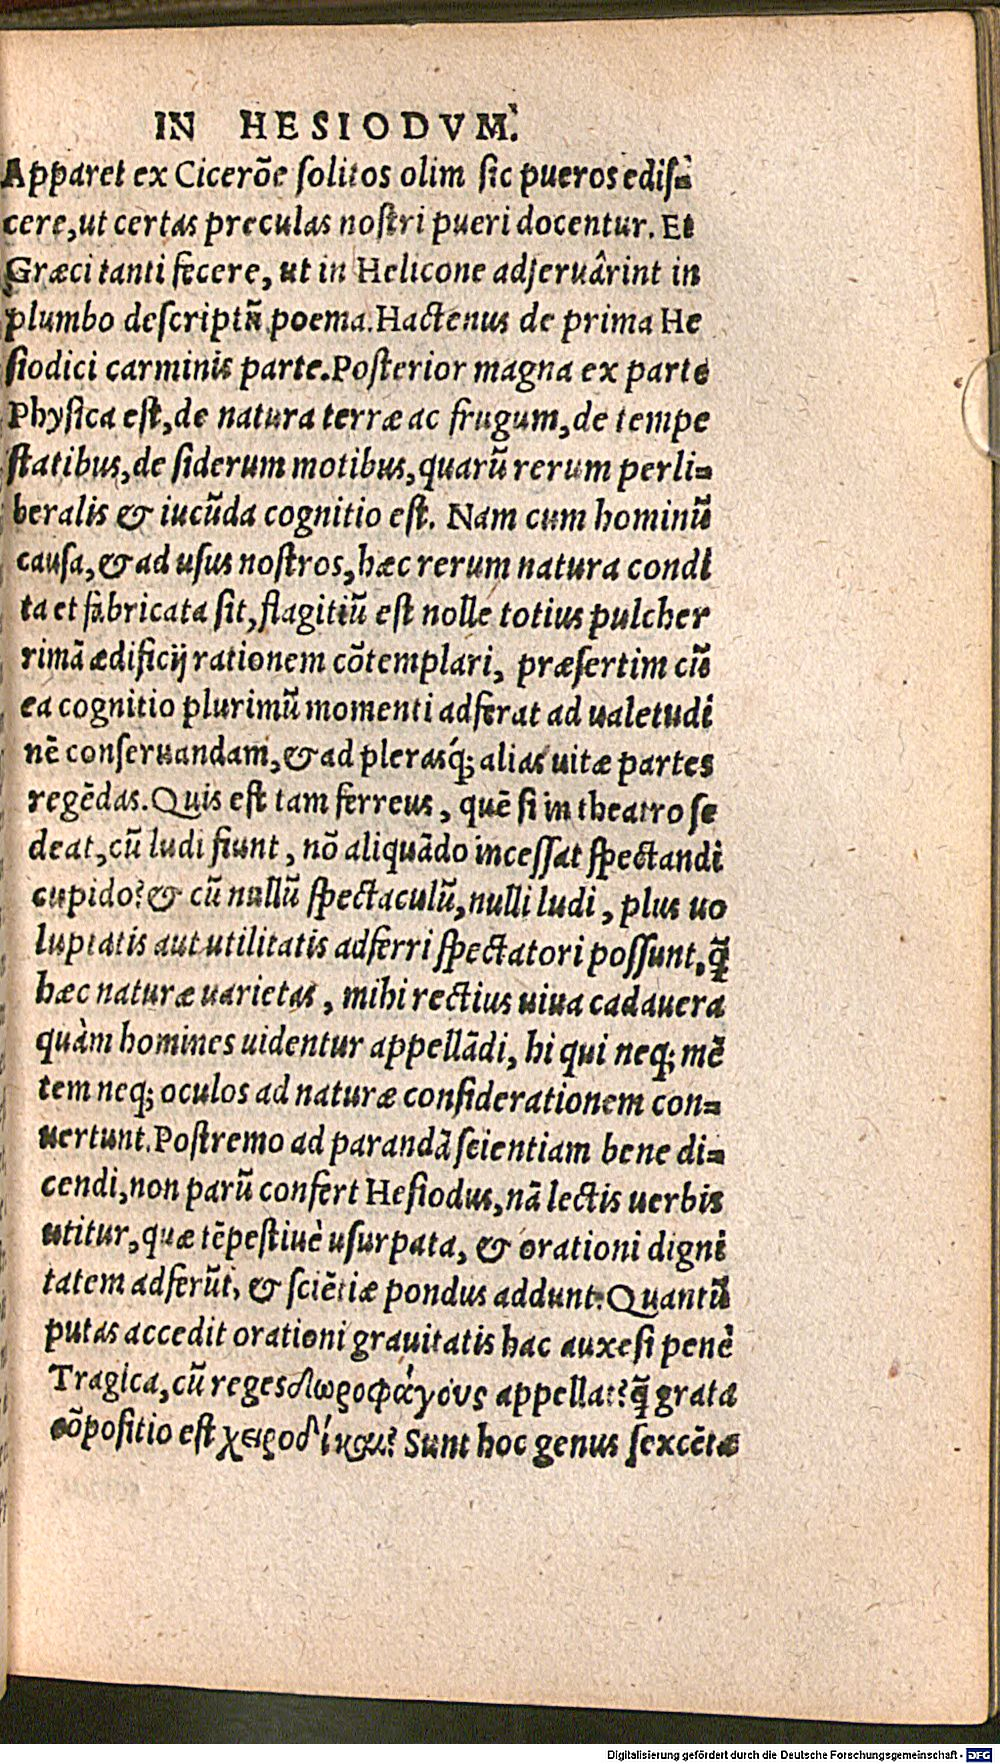 IN HESIODVM.
Apparet ex Cicerōe ſolitos olim ſic pueros ediſ-
cere, ut certas preculas noſtri pueri docentur. Et
Græci tanti fecere, ut in Helicone adſeruârint in
plumbo deſcriptū poema. Hactenus de prima He
ſiodici carminis parte. Poſterior magna ex parte
Phyſica eſt, de natura terræ ac frugum, de tempe
ſtatibus, de ſiderum motibus, quarū rerum perli-
beralis & iucūda cognitio eſt. Nam cum hominū
cauſa, & ad uſus noſtros, hæc rerum natura condi
ta et fabricata ſit, flagitiū eſt nolle totius pulcher
rimā ædificij rationem cōtemplari, præſertim cū
ea cognitio plurimū momenti adferat ad ualetudi
nē conſeruandam, & ad pleraſq́; alias uitæ partes
regēdas. Quis eſt tam ferreus, quē ſi in theatro ſe
deat, cū ludi fiunt, nō aliquādo inceſſat ſpectandi
cupido? & cū nullū ſpectaculū, nulli ludi, plus uo
luptatis aut utilitatis adferri ſpectatori poſſunt, q̄
hæc naturæ uarietas, mihi rectius uiua cadauera
quàm homines uidentur appellādi, hi qui neq; mē
tem neq; oculos ad naturæ conſiderationem con-
uertunt. Poſtremo ad parandā ſcientiam bene di-
cendi, non parū confert Heſiodus, nā lectis uerbis
utitur, quæ tēpeſtiuè uſurpata, & orationi digni
tatem adferūt, & ſciētiæ pondus addunt. Quantū
putas accedit orationi grauitatis hac auxeſi penè
Tragica, cū reges δωροφάγους appellat? q̄ grata
cōpoſitio eſt χειροδίκαι? Sunt hoc genus ſexcētæ
Digitalisierung gefördert durch die Deutsche Forschungsgemeinschaft - DFG